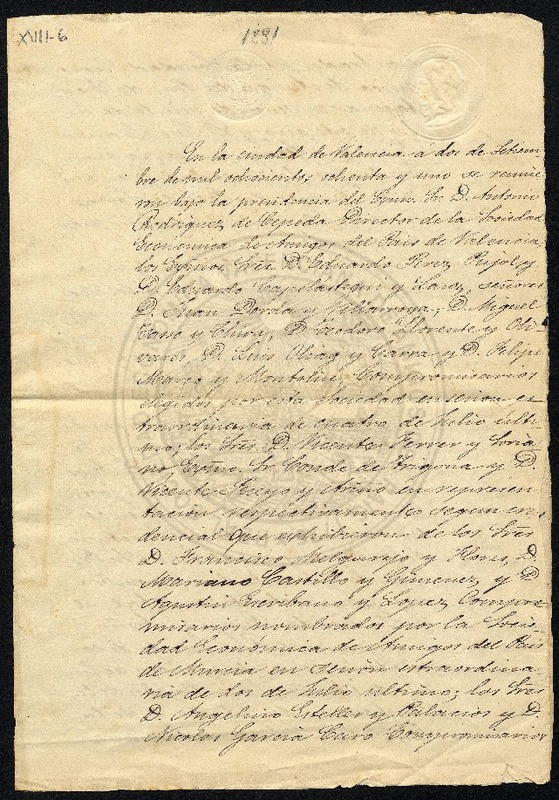 XVIII-6
1881
En la ciudad de Valencia á dos de Setiem
bre de mil ochocientos ochenta y uno se reunie
ron bajo la presidencia del Excmo. Sr. D. Antonio
Rodriguez de Cepeda Director de la Sociedad
Económica de Amigos del Pais de Valencia,
los Excmos. Sres. D. Eduardo Perez Pujol y
D. Eduardo Capelastegui y Lara, señores
D. Juan Dordá y Villarroya, D. Miguel
Caro y D. Teodoro Llorente y Oli
vares, D. Luis Oliag y Carra y D. Felipe
Marco y Montoliu, Compromisarios
elegidos por esta Sociedad en sesion es
traordinaria de cuatro de Julio últi
mo; los Sres. D. Vicente Ferrer y Soria
no Excmo. Sr. Conde de y D.
Vicente y en represen
tacion respectivamente segun cre
dencial que exhibieron de los Sres.
D. Francisco Melgarejo y D.
Mariano Castillo y Gimenez, y D.
Agustin Escribano y Lopez, Compro
misarios nombrados por la Socie
dad Económica de Amigos del Pais
de Murcia en sesion estraordina
ria de dos de Julio ultimo; los Sres.
D. Angelino Esteller y Palacios y D.
Nicolas Garcia Caro Compromisarios